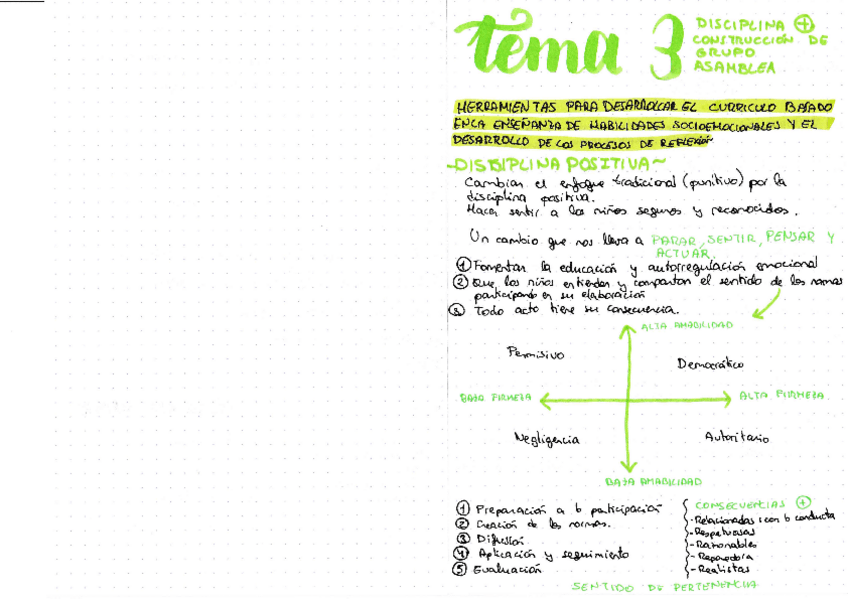 tema 3
DISCIPLINA +
CONSTRUCCIÓN DE
GRUPO
ASAMBLEA
HERRAMIENTAS PARA DESARROLLAR EL CURRICULO BASADO
EN LA ENSEÑANZA DE HABILIDADES SOCIOEMOCIONALES Y EL
DESARROLLO DE LOS PROCESOS DE REFLEXIÓN
-DISCIPLINA POSITIVA~
Cambiar el enfoque tradicional (punitivo) por la
disciplina positiva.
Hacer sentir a los niños seguros y reconocidos.
Un cambio que nos lleva a PARAR, SENTIR, PENSAR Y
ACTUAR.
① Fomentar la educación y autorregulación emocional
② Que los niños entiendan y compartan el sentido de las normas
participando en su elaboración
③ Todo acto tiene su consecuencia.
ALTA AMABILIDAD
Permisivo
Democrático
BAJA FIRMEZA
ALTA FIRMEZA
Negligencia
Autoritario
BAJA AMABILIDAD
① Preparación a la participación
② Creación de las normas.
③ Difusión
④ Aplicación y seguimiento
⑤ Evaluación
CONSECUENCIAS +
-Relacionadas con la conducta
-Respetuosas
-Razonables
-Reparadora
-Realistas
SENTIDO DE PERTENENCIA